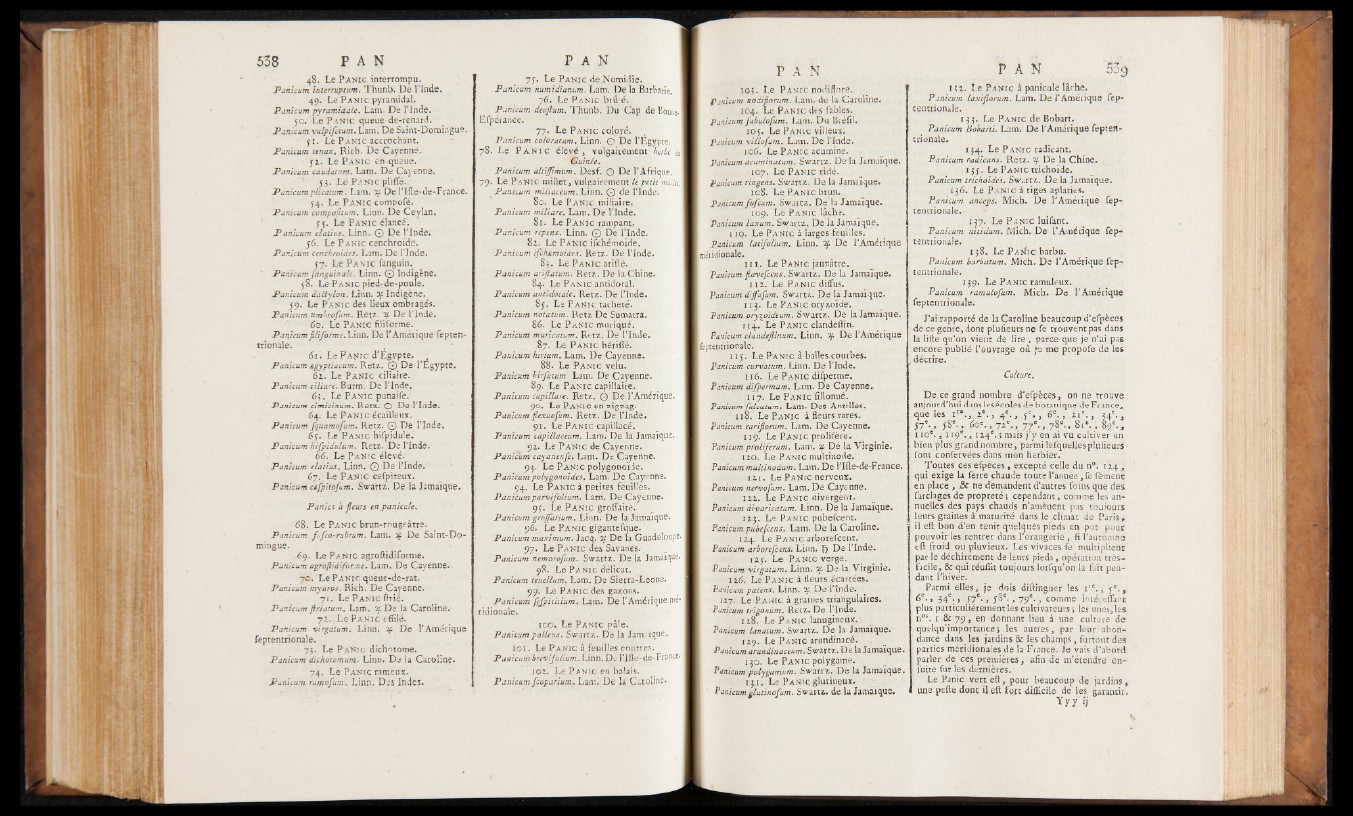 538 PAN
48. Le PANIC interrompu.
Panicum interruptum. Thunb. De l'Inde.
49. Le PANIC pyramidal.
Panicum pyramidale. Lam. De l'Inde.
50. Le PANIC queue-de-renard.
Panicum vulpisetum. Lam. De Saint-Domingue.
51. Le PANIC accrochant.
Panicum tenax. Rich. De Cayenne.
52. Le PANIC en queue.
Panicum caudatum. Lam. De Cayenne.
53. Le PANIC plissé.
Panicum plicatum. Lam. ♃ De l'Isle-de-France.
54. Le PANIC composé.
Panicum compositum. Linn. De Ceylan.
55. Le PANIC élancé.
Panicum elatius. Linn. ☉ De l'Inde.
56. Le PANIC cenchroïde.
Panicum cenchroides. Lam. De l'Inde.
57. Le PANIC sanguin.
Panicum sanguinale. Linn. ☉ Indigène.
58. Le PANIC pied-de-poule.
Panicum dactylon. Linn. ♃ Indigène.
59. Le PANIC des lieux ombragés.
Panicum umbrosum. Retz. ♃ De l'Inde.
60. Le PANIC filiforme.
Panicum filiforme. Linn. De l'Amérique septen-
trionale.
61. Le PANIC d'Égypte.
Panicum ægyptiacum. Retz. ☉ De l'Égypte.
62. Le PANIC ciliaire.
Panicum ciliare. Burm. De l'Inde.
63. Le PANIC punaise.
Panicum cimicinum. Retz. ☉ De l'Inde.
64. Le PANIC écailleux.
Panicum squamosum. Retz. ☉ De l'Inde.
65. Le PANIC hispidule.
Panicum hispidulum. Retz. De l'Inde.
66. Le PANIC élevé.
Panicum elatius. Linn. ☉ De l'Inde.
67. Le PANIC cespiteux.
Panicum cespitosum. Swartz. De la Jamaïque.
Panics à fleurs en panicule.
68. Le PANIC brun-rougeâtre.
Panicum fusco-rubrum. Lam. ♃ De Saint-Do-
mingue.
69. Le PANIC agrostidiforme.
Panicum agrostidiforme. Lam. De Cayenne.
70. Le PANIC queue-de-rat.
Panicum myuros. Rich. De Cayenne.
71. Le PANIC strié.
Panicum striatum. Lam. ♃ De la Caroline.
72. Le PANIC effilé.
Panicum virgatum. Linn. ♃ De l'Amérique
septentrionale.
73. Le PANIC dichotome.
Panicum dichotomum. Linn. De la Caroline.
74. Le PANIC rameux.
Panicum ramosum. Linn. Des Indes.
PAN
75. Le PANIC de Numidie.
Panicum numidianum. Lam. De la Barbarie.
76. Le PANIC brûlé.
Panicum deustum. Thunb. Du Cap de Bonne-
Espérance.
77. Le PANIC coloré.
Panicum coloratum. Linn. ☉ De l'Égypte.
78. Le PANIC élevé, vulgairement herbe de
Guinée.
Panicum altissimum. Desf. ☉ De l'Afrique.
79. Le PANIC millet, vulgairement le petit millet.
Panicum miliaceum. Linn. ☉ de l'Inde.
80. Le PANIC miliaire.
Panicum miliare. Lam. De l'Inde.
81. Le PANIC rampant.
Panicum repens. Linn. ☉ De l'Inde.
82. Le PANIC ischémoïde.
Panicum ischæmoides. Retz. De l'Inde.
83. Le PANIC aristé.
Panicum aristatum. Retz. De la Chine.
84. Le PANIC antidotal.
Panicum antidotale. Retz. De l'Inde.
85. Le PANIC tacheté.
Panicum notatum. Retz De Sumatra.
86. Le PANIC muriqué.
Panicum muricatum. Retz. De l'Inde.
87. Le PANIC hérissé.
Panicum hirtum. Lam. De Cayenne.
88. Le PANIC velu.
Panicum hirsutum. Lam. De Cayenne.
89. Le PANIC capillaire.
Panicum capillare. Retz. ☉ De l'Amérique.
90. Le PANIC en zigzag.
Panicum flexuosum. Retz. De l'Inde.
91. Le PANIC capillacé.
Panicum capillaceum. Lam. De la Jamaïque.
92. Le PANIC de Cayenne.
Panicum cayanense. Lam. De Cayenne.
93. Le PANIC polygonoïde.
Panicum polygonoides. Lam. De Cayenne.
94. Le PANIC à petites feuilles.
Panicum parvifolium. Lam. De Cayenne.
95. Le PANIC grossaire.
Panicum grossarium. Linn. De la Jamaïque.
96. Le PANIC gigantesque.
Panicum maximum. Jacq. ♃ De la Guadeloupe.
97. Le PANIC des Savanes.
Panicum nemorosum. Swartz. De la Jamaïque.
98. Le PANIC délicat.
Panicum tenellum. Lam. De Sierra-Leone.
99. Le PANIC des gazons.
Panicum sespititium. Lam. De l'Amérique mé-
ridionale.
100. Le PANIC pâle.
Panicum pallens. Swartz. De la Jamaïque.
101. Le PANIC à feuilles courtes.
Panicum brevifolium. Linn. D. l'Isle-de-France.
102. Le PANIC en balais.
Panicum scoparium. Lam. De la Caroline.
PAN
103. Le PANIC nodiflore.
Panicum nodiflorum. Lam. de la Caroline.
104. Le PANIC des sables.
Panicum sabulosum. Lam. Du Brésil.
105. Le PANIC villeux.
Panicum villosum. Lam. De l'Inde.
106. Le PANIC acuminé.
Panicum acuminatum. Swartz. De la Jamaïque.
107. Le PANIC ridé.
Panicum ringens. Swartz. De la Jamaïque.
108. Le PANIC brun.
Panicum fuscum. Swartz. De la Jamaïque.
109. Le PANIC lâche.
Panicum laxum. Swartz. De la Jamaïque.
110. Le PANIC à larges feuilles.
Panicum latifolium. Linn. ♃ De l'Amérique
méridionale.
111. Le PANIC jaunâtre.
Panicum flavescens. Swartz. De la Jamaïque.
112. Le PANIC diffus.
Panicum diffusum. Swartz. De la Jamaïque.
113. Le PANIC oryzoïde.
Panicum oryzoideum. Swartz. De la Jamaïque.
114. Le PANIC clandestin.
Panicum clandestinum. Linn. ♃ De l'Amérique
septentrionale.
115. Le PANIC à balles courbes.
Panicum curvatum. Linn. De l'Inde.
116. Le PANIC disperme.
Panicum dispermum. Lam. De Cayenne.
117. Le PANIC sillonné.
Panicum sulcatum. Lam. Des Antilles.
118. Le PANIC à fleurs rares.
Panicum rariflorum. Lam. De Cayenne.
119. Le PANIC prolifère.
Panicum proliferum. Lam. ♃ De la Virginie.
120. Le PANIC multinode.
Panicum multinodum. Lam. De l'Isle-de-France.
121. Le PANIC nerveux.
Panicum nervosum. Lam. De Cayenne.
122. Le PANIC divergent.
Panicum divaricatum. Linn. De la Jamaïque.
123. Le PANIC pubescent.
Panicum pubescens. Lam. De la Caroline.
124. Le PANIC arborescent.
Panicum arborescens. Linn. ♄ De l'Inde.
125. Le PANIC vergé.
Panicum virgatum. Linn. ♃ De la Virginie.
126. Le PANIC à fleurs écartées.
Panicum patens. Linn. ♃ De l'Inde.
127. Le PANIC à graines triangulaires.
Panicum trigonum. Retz. De l'Inde.
128. Le PANIC lanugineux.
Panicum lanatum. Swartz. De la Jamaïque.
129. Le PANIC arundinacé.
Panicum arundinaceum. Swartz. De la Jamaïque.
130. Le PANIC polygame.
Panicum polygamum. Swartz. De la Jamaïque.
131. Le PANIC glutineux.
Panicum glutinosum. Swartz. de la Jamaïque.
PAN 539
132. Le PANIC à panicule lâche.
Panicum laxiflorum. Lam. De l'Amérique sep-
tentrionale.
133. Le PANIC de Bobart.
Panicum Bobarti. Lam. De l'Amérique septen-
trionale.
134. Le PANIC radicant.
Panicum radicans. Retz. ♃ De la Chine.
135. Le PANIC trichoïde.
Panicum trichoides. Swartz. De la Jamaïque.
136. Le PANIC à tiges aplaties.
Panicum anceps. Mich. De l'Amérique sep-
tentrionale.
137. Le PANIC luisant.
Panicum nitidum. Mich. De l'Amérique sep-
tentrionale.
138. Le PANIC barbu.
Panicum barbatum. Mich. De l'Amérique sep-
tentrionale.
139. Le PANIC ramuleux.
Panicum ramulosum. Mich. De l'Amérique
septentrionale.
J'ai rapporté de la Caroline beaucoup d'espèces
de ce genre, dont plusieurs ne se trouvent pas dans
la liste qu'on vient de lire, parce que je n'ai pas
encore publié l'ouvrage où je me propose de les
décrire.
Culture.
De ce grand nombre d'espèces, on ne trouve
aujourd'hui dans les écoles de botanique de France,
que les 1re., 2e., 4e., 5e., 6e., 21e., 34e.,
57e., 58e., 60e., 72e., 77e., 78e., 81e., 89e.,
110e., 119e., 124e.; mais j'y en ai vu cultiver un
bien plus grand nombre, parmi lesquelles plusieurs
sont conservées dans mon herbier.
Toutes ces espèces, excepté celle du n°. 124,
qui exige la serre chaude toute l'année, se sèment
en place, & ne demandent d'autres soins que des
sarclages de propreté; cependant, comme les an-
nuelles des pays chauds n'amènent pas toujours
leurs graines à maturité dans le climat de Paris,
il est bon d'en tenir quelques pieds en pot pour
pouvoir les rentrer dans l'orangerie, si l'automne
est froid ou pluvieux. Les vivaces se multiplient
par le déchirement de leurs pieds, opération très-
facile, & qui réussit toujours lorsqu'on la fait pen-
dant l'hiver.
Parmi elles, je dois distinguer les 1re., 5e.,
6e., 34e., 57e., 58e., 79e., comme intéressant
plus particuliérement les cultivateurs; les unes, les
nos. 1 & 79, en donnant lieu à une culture de
quelqu'importance; les autres, par leur abon-
dance dans les jardins & les champs, surtout des
parties méridionales de la France. Je vais d'abord
parler de ces premières, afin de m'étendre en-
suite sur les dernières.
Le Panic vert est, pour beaucoup de jardins,
une peste dont il est fort difficile de les garantir.
Yyy ij